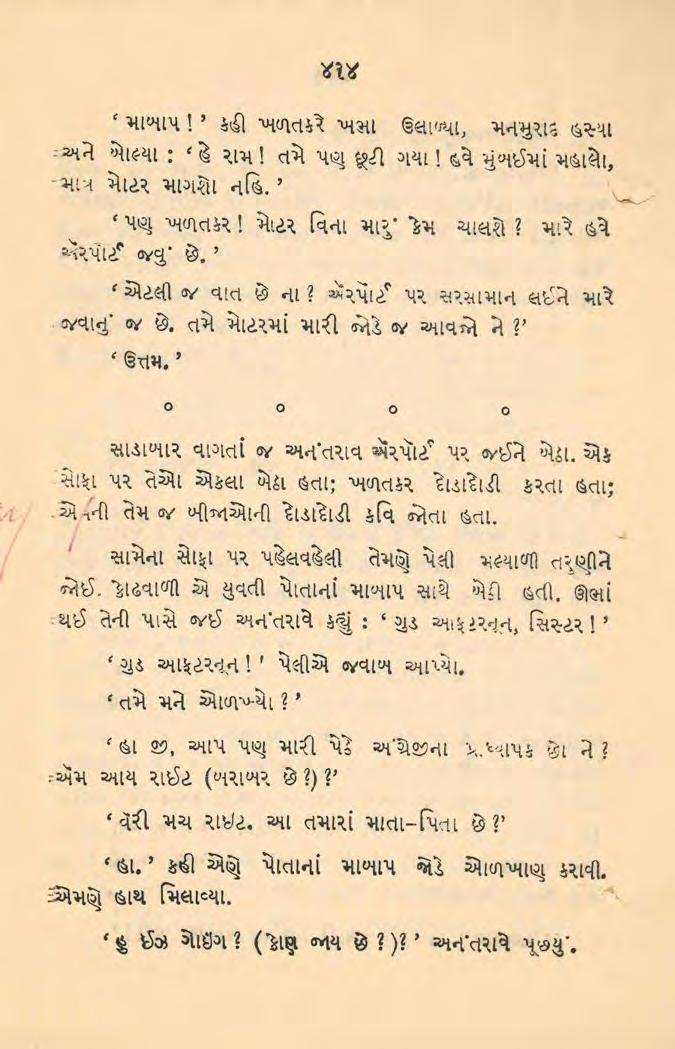 ૪૧૪
‘ માબાપ ! ’ કહી ખળતકરે ખભા ઉલાળ્યા, મનમુરાદ હસ્યા
અને બોલ્યા : ‘ હે રામ ! તમે પણ છૂટી ગયા ! હવે મુંબઈમાં મહાલો,
માત્ર મોટર માગશો નહિ. ’
‘ પણ ખળતકર ! મોટર વિના મારું કેમ ચાલશે ? મારે હવે
ઍરપૉર્ટ જવું છે. ’
‘ એટલી જ વાત છે ના ? ઍરપૉર્ટ પર સરસામાન લઈને મારે
જવાનું જ છે. તમે મોટરમાં મારી જોડે જ આવજો ને ?’
‘ ઉત્તમ. ’
૦ ૦ ૦ ૦
સાડાબાર વાગતાં જ અનંતરાવ ઍરપૉર્ટ પર જઈને બેઠા. એક
સોફા પર તેઓ એકલા બેઠા હતા; ખળતકર દોડાદોડી કરતા હતા;
એમની તેમ જ બીજાઓની દોડાદોડી કવિ જોતા હતા.
સામેના સોફા પર પહેલવહેલી તેમણે પેલી મલ્યાળી તરુણીને
જોઈ. કોઢવાળી એ યુવતી પોતાનાં માબાપ સાથે બેઠી હતી. ઊભાં
થઈ તેની પાસે જઈ અનંતરાવે કહ્યું : ‘ ગુડ આફ્ટરનૂન, સિસ્ટર ! ’
‘ ગુડ આફ્ટરનૂન ! ’ પેલીએ જવાબ આપ્યો.
‘ તમે મને ઓળખ્યો ? ’
‘ હા જી, આપ પણ મારી પેઠે અંગ્રેજીના પ્રાધ્યાપક છો ને ?
ઍમ આય રાઈટ (બરાબર છે ?) ?’
‘ વૅરી મચ રાઇટ. આ તમારાં માતા–પિતા છે ?’
‘ હા. ’ કહી એણે પોતાનાં માબાપ જોડે ઓળખાણ કરાવી.
એમણે હાથ મિલાવ્યા.
‘ હુ ઈઝ ગોઇંગ ? (કોણ જાય છે ? )? ’ અનંતરાવે પૂછ્યું.